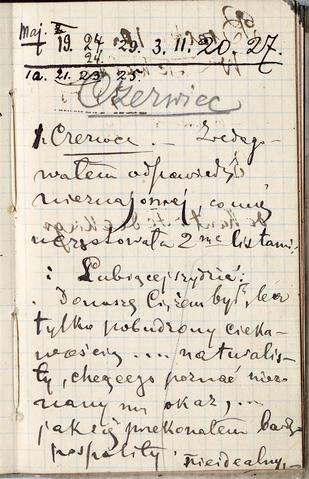 Maj 19. 24 29. 3. 11. 20. 27.
24
12. 21. 23 25.
Czerwiec
1. Czerwca – Zredago-
wałem odpowiedź
nieznajomej, co mię
uczęstowała 2ma listami
i Lubiącej szydzić:
Donoszę Ci, żem był, lecz
tylko pobudzony cieka-
wością .... naturalis-
ty, chcącego poznać niez-
nany mu okaz, ...
jak się przekonałem bardzo
pospolity. nieidealny,